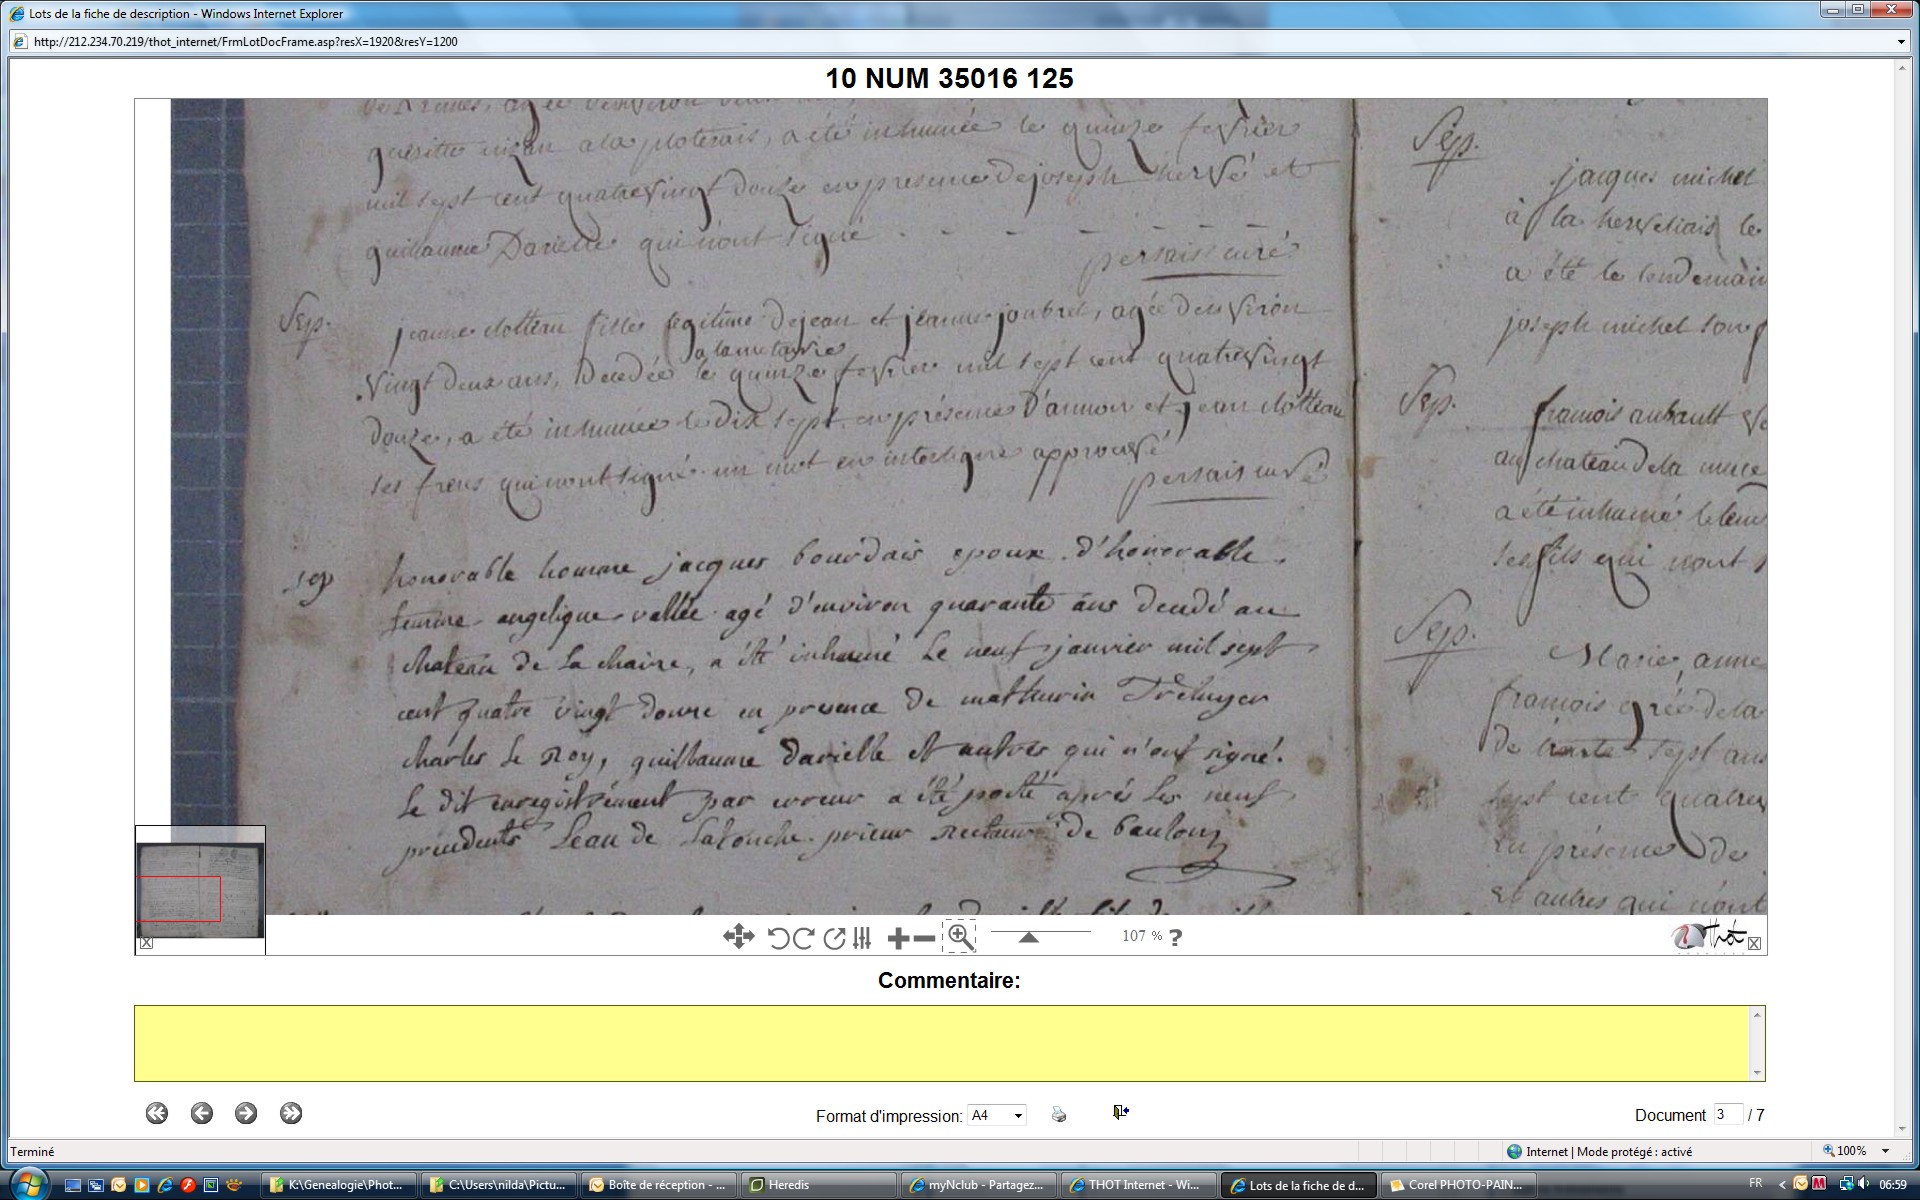 Lots de la fiche de description - Windows Internet Explorer
http://212.234.70.219/thot_internet/FrmLotDocFrame.asp?resX=1920&resY=1200
10 NUM 35016 125
a été inhumée le quinze fevrier
mil sept cent quatrevingt douze en presence de joseph hervé et
guillaume Darielle qui n'ont signé
persais curé
Sep.
jeanne clotteau fille legitime de jean et jeanne joubrel, agée denviron
a la metairie
vingt deux ans, decedée le quinze fevrier mil sept cent quatrevingt
douze, a été inhumée le dix sept, en présence D'annon et jean clotteau
ses freres qui n'ont signé. un mot en interligne approuvé
persais curé
sep
honorable homme jacques bourdais epoux d'honorable
femme angelique vallée agé d'environ quarante ans decedé au
chateau de la chaire, a été inhumé le neuf janvier mil sept
cent quatre vingt douze en presence de mathurin Treluyer
charles le Roy, guillaume darielle et autres qui n'ont signé.
le dit enregistrement par erreur a été porté après les neuf
precedents Leau de Latouche prieur Recteur de baulon
Sep.
jacques michel
à la herveliais le
a été le lendemain
joseph michel son
Sep.
francois aubault
au chateau de la muce
a été inhumé le len
ses fils qui n'ont
Sep.
Marie anne
francois de la
de trente sept ans
sept cent quatre
en présence de
et autres qui n'ont
107 % ?
Thot
Commentaire:
Format d'impression: A4
Document 3 / 7
Terminé
Internet | Mode protégé : activé
100%
K:\Genealogie\Phot...
C:\Users\nilda\Pictu...
Boîte de réception - ...
Heredis
myNclub - Partagez...
THOT Internet - Wi...
Lots de la fiche de d...
Corel PHOTO-PAIN...
FR
06:59